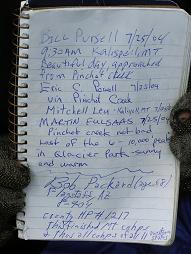 Bill Pursell 7/25/04
9:30AM Kalispell, MT
Beautiful day, approached
from Pinchot creek
Eric S. Powell 7/25/04
via Pinchot Creek
Mitchell Kalispell, MT 7/25/04
MARTIN 7/25/04
Pinchot creek not bad
Last of the 6 - 10,000 peaks
in Glacier Park - sunny
and warm
Bob Packard (age 68)
AZ
County HP # 1217
This finished MT cohps
& thus all cohps in all